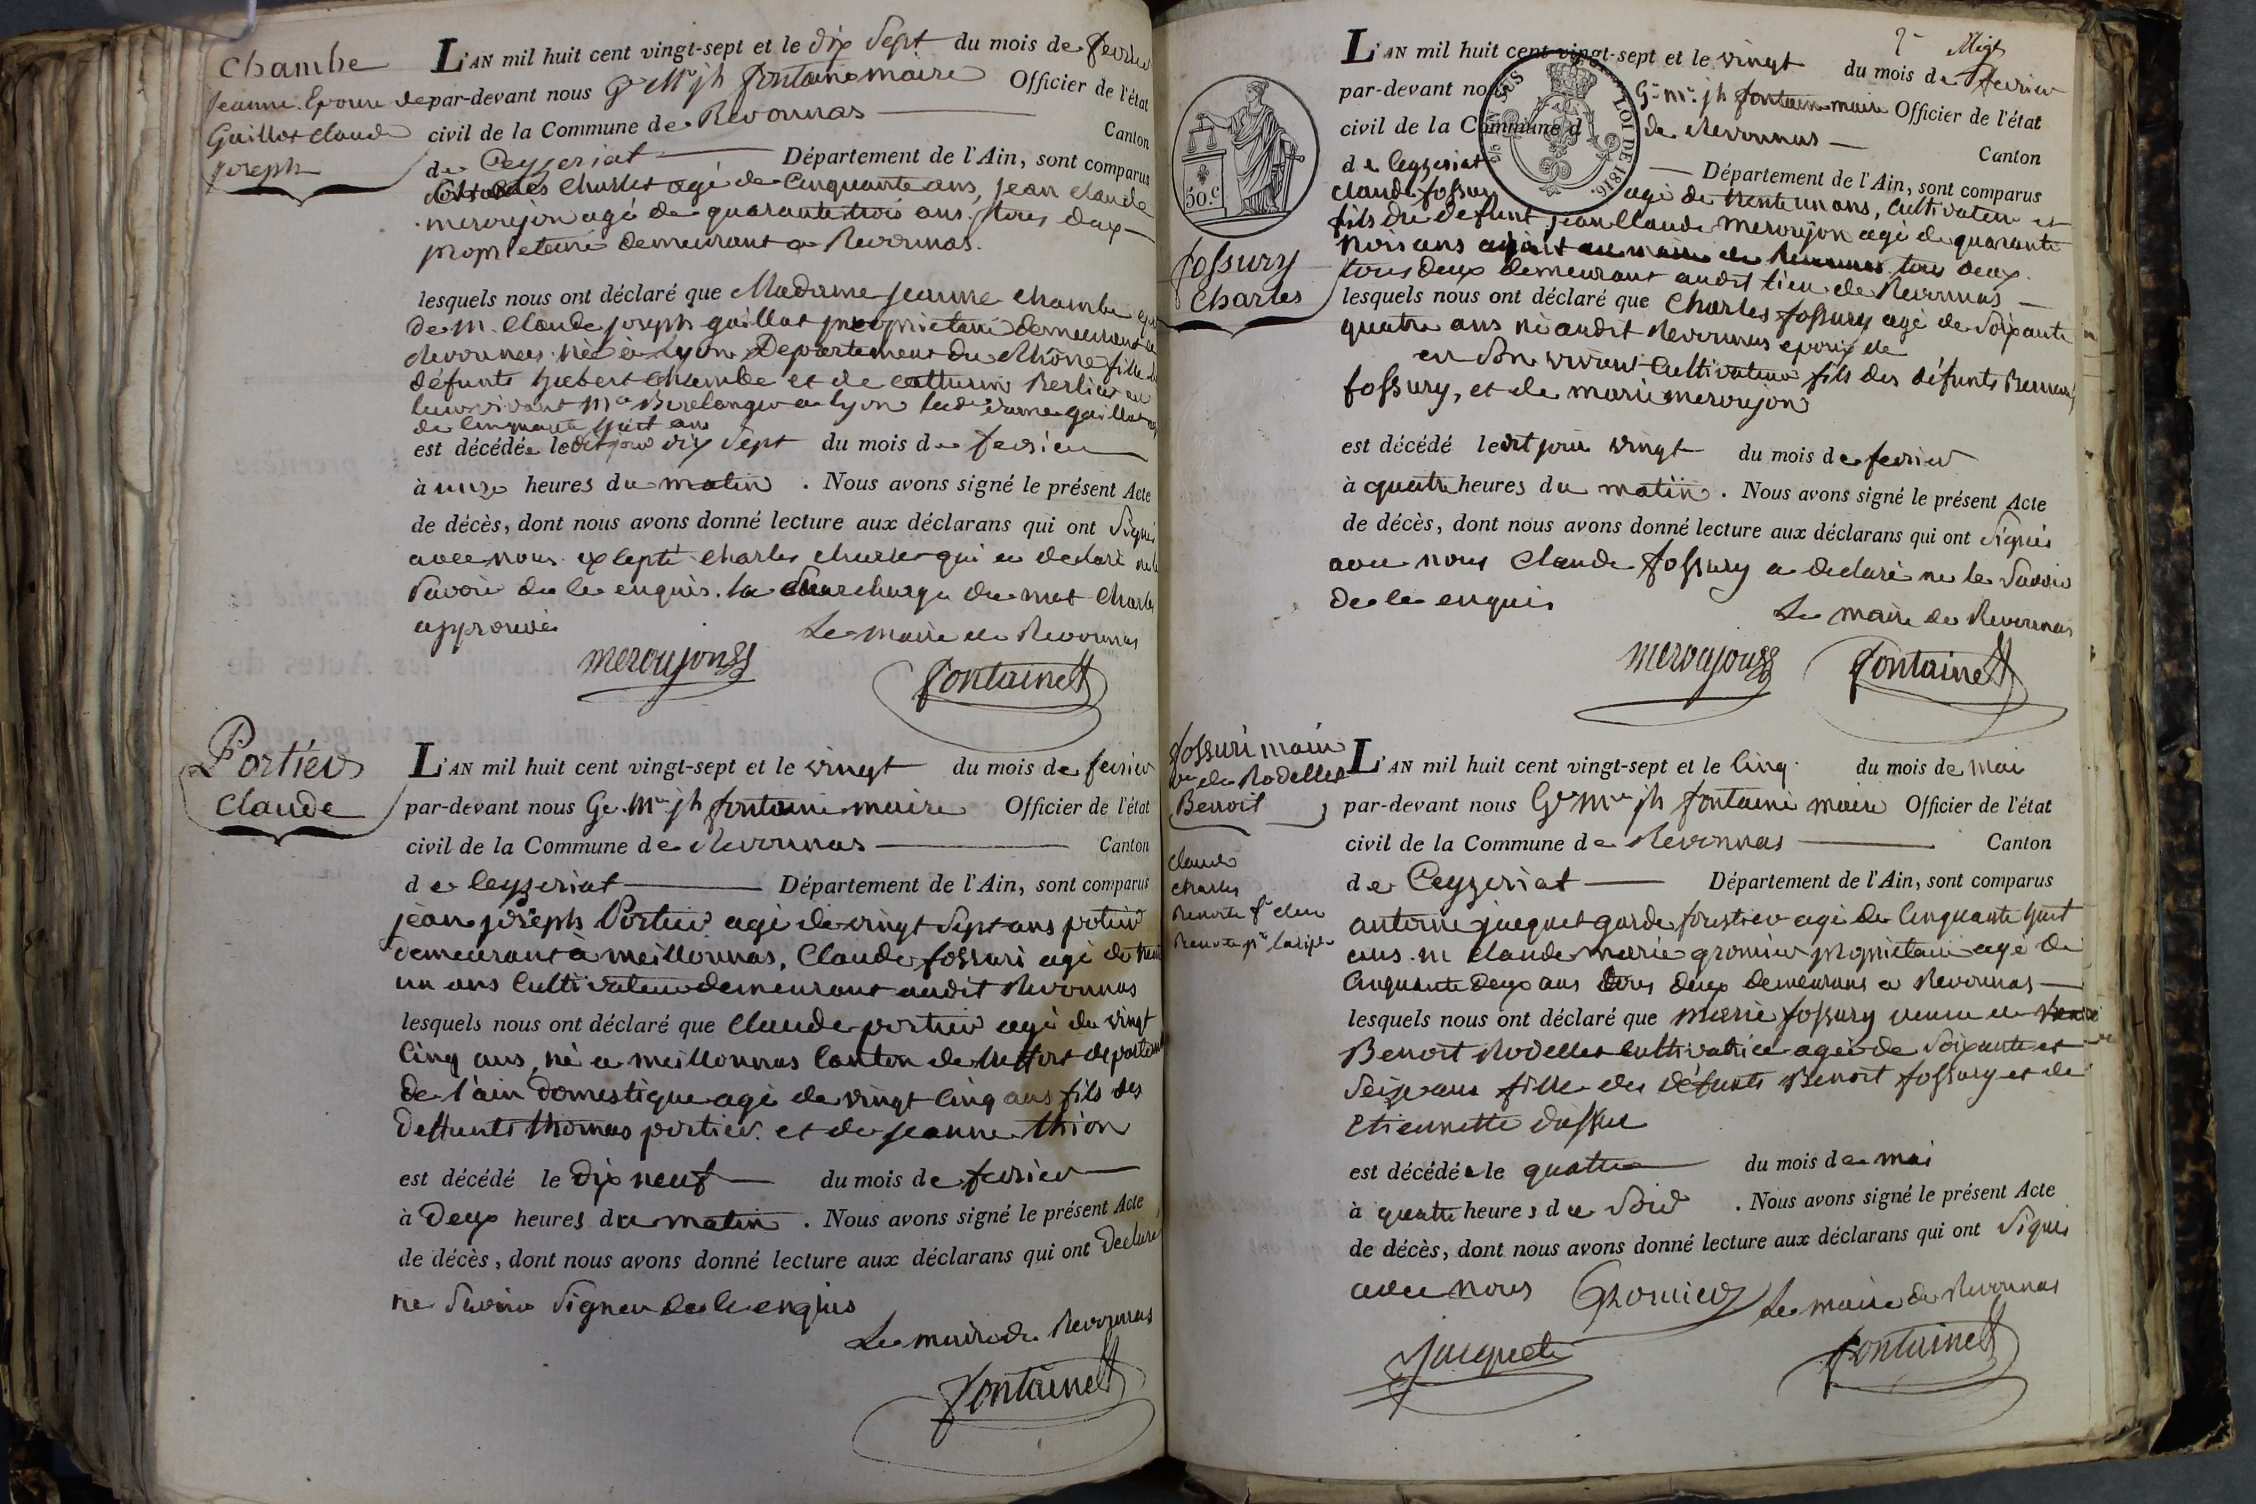 Chambe
Jeanne Epouse de
Guillot Claude
joseph
L'AN mil huit cent vingt-sept et le dix sept du mois de fevrier
par-devant nous Ge Mie jh fontaine maire Officier de l'état
civil de la Commune de Revonnas Canton
de Ceyzeriat Département de l'Ain, sont comparus
Charles agé de Cinquante ans, jean claude
meroujon agé de quarante trois ans. tous deux
proprietaire demeurant a Revonnas.
lesquels nous ont déclaré que Madame jeanne chambe
de m. Claude joseph guillot proprietaire demeurant a
Revonnas née à Lyon Departement du Rhône fille de
défunts hubert Chambe et de catherine Berlier en
leur vivant à lyon la de dame guillot
de Cinquante huit ans
est décédée ledit jour dix sept du mois de fevrier
à onze heures du matin. Nous avons signé le présent Acte
de décès, dont nous avons donné lecture aux déclarans qui ont Signé
avec nous excepté charles qui a declaré ne le
Savoir de le enquis. la Surcharge du mot Charles
approuvé
Le maire de Revonnas
meroujon
fontaine
Portier
Claude
L'AN mil huit cent vingt-sept et le vingt du mois de fevrier
par-devant nous Ge. Mie jh fontaine maire Officier de l'état
civil de la Commune de Revonnas Canton
de Ceyzeriat Département de l'Ain, sont comparus
jean joseph Portier agé de vingt Sept ans potier
demeurant à meillonnas, Claude fossuri agé de trente
un ans Cultivateur demeurant audit Revonnas
lesquels nous ont déclaré que Claude portier agé de vingt
Cinq ans, né a meillonnas Canton de treffort departement
de l'ain Domestique agé de vingt Cinq ans fils des
Deffunts thomas portier. et de jeanne thion
est décédé le Dix neuf du mois de fevrier
à Deux heures du matin. Nous avons signé le présent Acte
de décès, dont nous avons donné lecture aux déclarans qui ont Declaré
ne Savoir Signer de le enquis
Le maire de Revonnas
fontaine
L'AN mil huit cent vingt-sept et le vingt du mois de fevrier
par-devant nous Ge mie jh fontaine maire Officier de l'état
civil de la Commune de Revonnas
Canton
de Ceyzeriat Département de l'Ain, sont comparus
claude fossury agé de trente un ans, Cultivateur et
fils du defunt jean Claude meroujon agé de quarante
trois ans tous deux
tous deux demeurant audit lieu de Revonnas
50.c
LOI DE 1816.
fossury
Charles
lesquels nous ont déclaré que Charles fossury agé de Soixante
quatre ans né audit Revonnas epoux de
en Son vivant Cultivateur fils des défunts Bernard
fossury, et de marie meroujon
est décédé ledit jour vingt du mois de fevrier
à quatre heures du matin. Nous avons signé le présent Acte
de décès, dont nous avons donné lecture aux déclarans qui ont Signés
avec nous Claude fossury a declaré ne le Savoir
de le enquis
Le maire de Revonnas
meroujon
fontaine
fossuri marie
ve de Rodellet
Benoit
claude
charles
L'AN mil huit cent vingt-sept et le Cinq du mois de mai
par-devant nous Ge Mie jh fontaine maire Officier de l'état
civil de la Commune de Revonnas Canton
de Ceyzeriat Département de l'Ain, sont comparus
antoine jacquet garde forestier agé de Cinquante huit
ans. m claude marie gromier proprietaire agé de
Cinquante deux ans tous deux demeurans a Revonnas
lesquels nous ont déclaré que marie fossury veuve de
Benoit Rodellet Cultivatrice agée de Soixante et
Seize ans fille des défunts Benoit fossury et de
Etiennette
est décédée le quatre du mois de mai
à quatre heures du Soir. Nous avons signé le présent Acte
de décès, dont nous avons donné lecture aux déclarans qui ont Signés
avec nous Gromier Le maire de Revonnas
Jacquet
fontaine